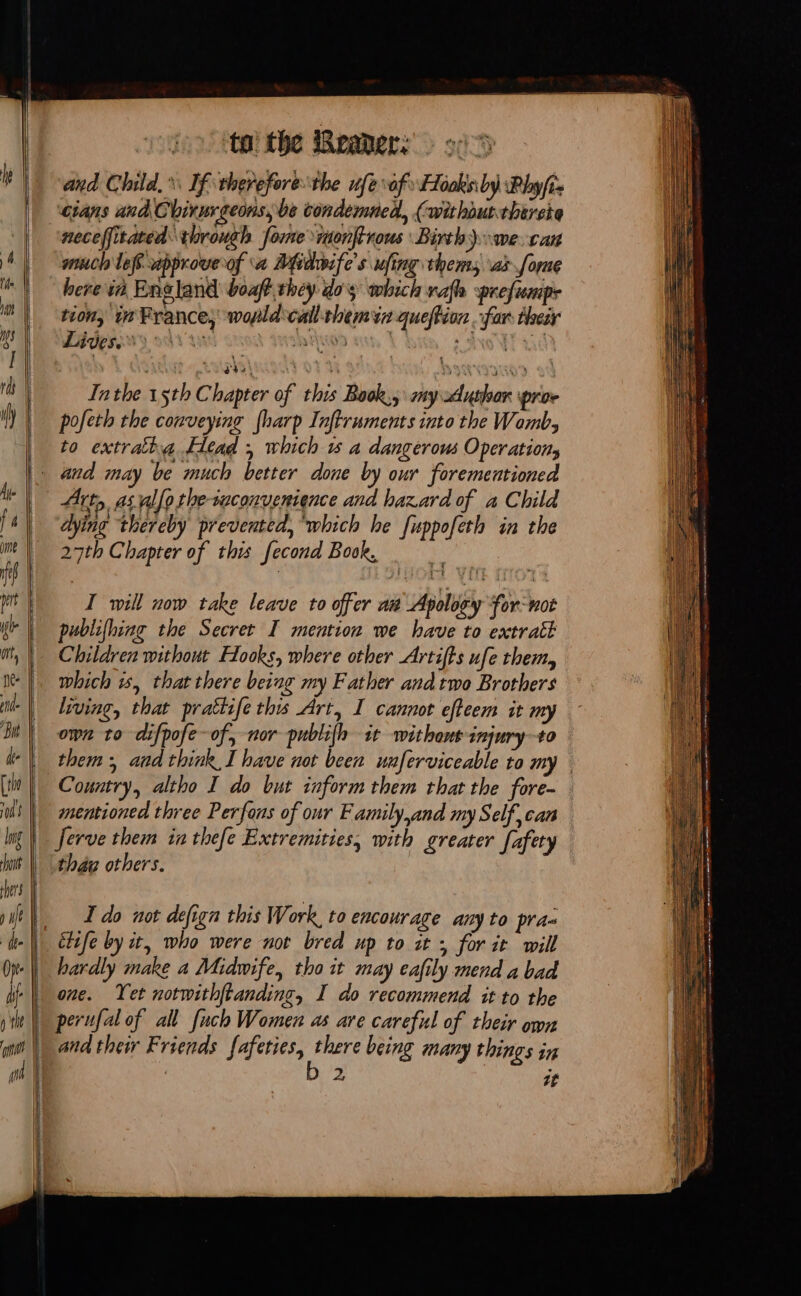 to the Reader.
and Child. If therefore the uſe of Hooks by Phyſi-
cians and Chirurgeons, be condemned, (without thereto
neceſſitated through ſome monſtrous Birth) we can
much leſs approve of a Midwife's uſing them, as ſome
here in England boaſt they do; which raſh preſump-
tion, in France, would call them in queſtion for their
Lives.
In the 15th Chapter of this Book, my Author pro-
poſeth the conveying ſharp Inſtruments into the Womb,
to extract a Head; which is a dangerous Operation,
and may be much better done by our forementioned
Art, as alſo the inconvenience and hazard of a Child
dying thereby prevented, which he ſuppoſeth in the
27th Chapter of this ſecond Book.
I will now take leave to offer an Apology for not
publiſhing the Secret I mention we have to extract
Children without Hooks, where other Artiſts uſe them,
which is, that there being my Father and two Brothers
living, that practiſe this Art, I cannot eſteem it my
own to diſpoſe of, nor publiſh it without injury to
them; and think I have not been unſerviceable to my
Country, altho I do but inform them that the fore-
mentioned three Perſons of our Family, and my Self, can
ſerve them in theſe Extremities, with greater ſafety
than others.
I do not deſign this Work, to encourage any to pra-
ctiſe by it, who were not bred up to it; for it will
hardly make a Midwife, tho it may eaſily mend a bad
one. Yet notwithſtanding, I do recommend it to the
peruſal of all ſuch Women as are careful of their own
and their Friends ſafeties, there being many things in
b 2
it